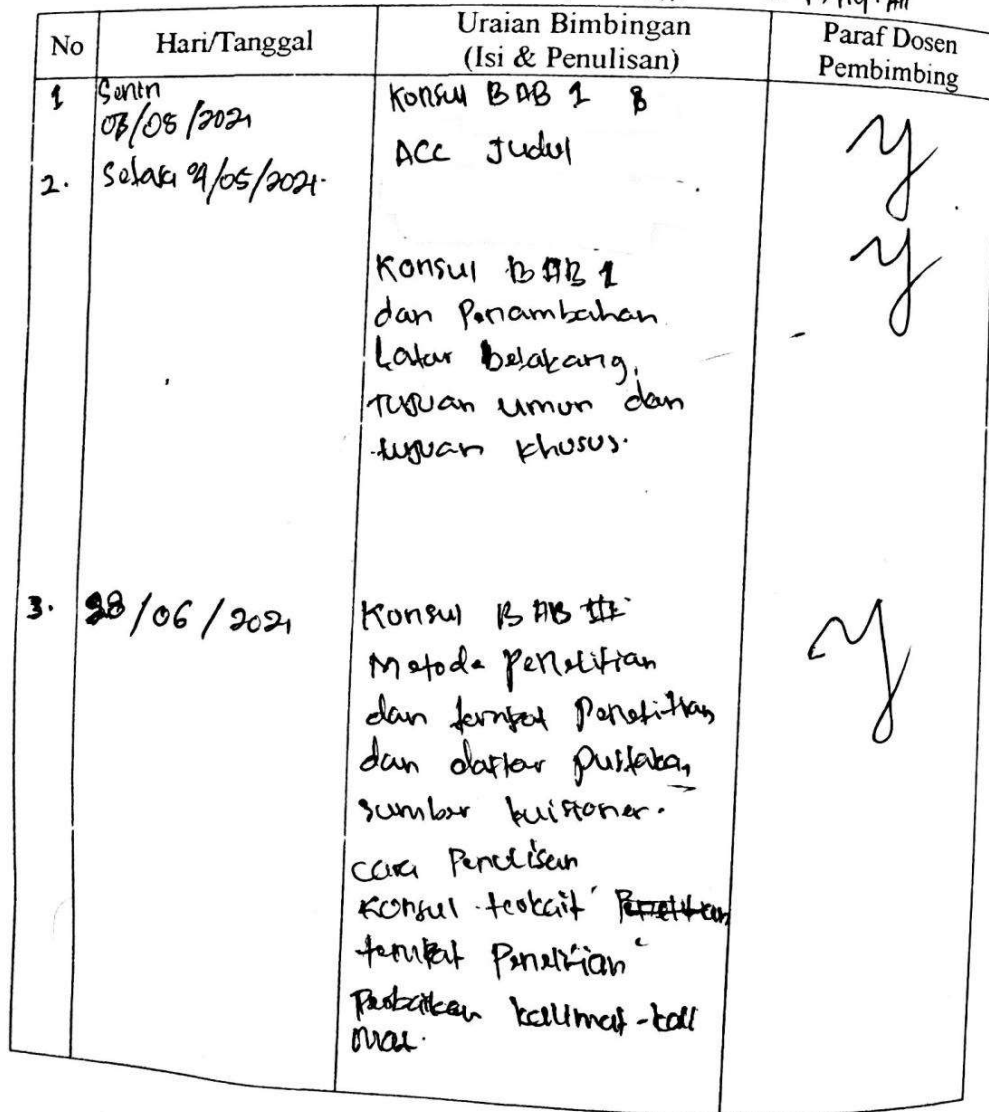 No Hari/Tanggal Uraian Bimbingan (Isi & Penulisan) Paraf Dosen Pembimbing
1 Senin Konsul BAB 1 &
03/05/2021 ACC Judul
2. Selasa 04/05/2021.
Konsul BAB 1
dan Penambahan
Latar belakang,
Tujuan umun dan
tujuan khusus.
3. 28/06/2021 Konsul BAB III
Metode Penelitian
dan tempat Penelitian
dan daftar Pustaka,
sumber kuisioner.
cara Penulisan
Konsul terkait
tempat Penelitian
Perbaikan kalimat-kali
mat.